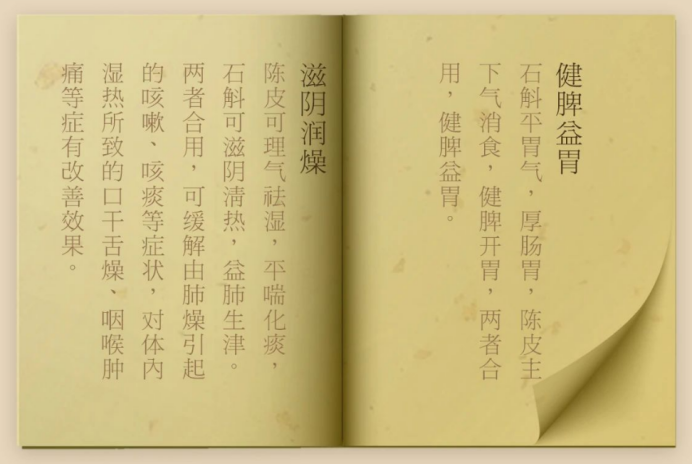 健脾益胃
石斛平胃气，厚肠胃，陈皮主
下气消食，健脾开胃，两者合
用，健脾益胃。
滋阴润燥
陈皮可理气祛湿，平喘化痰，
石斛可滋阴清热，益肺生津。
两者合用，可缓解由肺燥引起
的咳嗽、咳痰等症状，对体内
湿热所致的口干舌燥、咽喉肿
痛等症有改善效果。